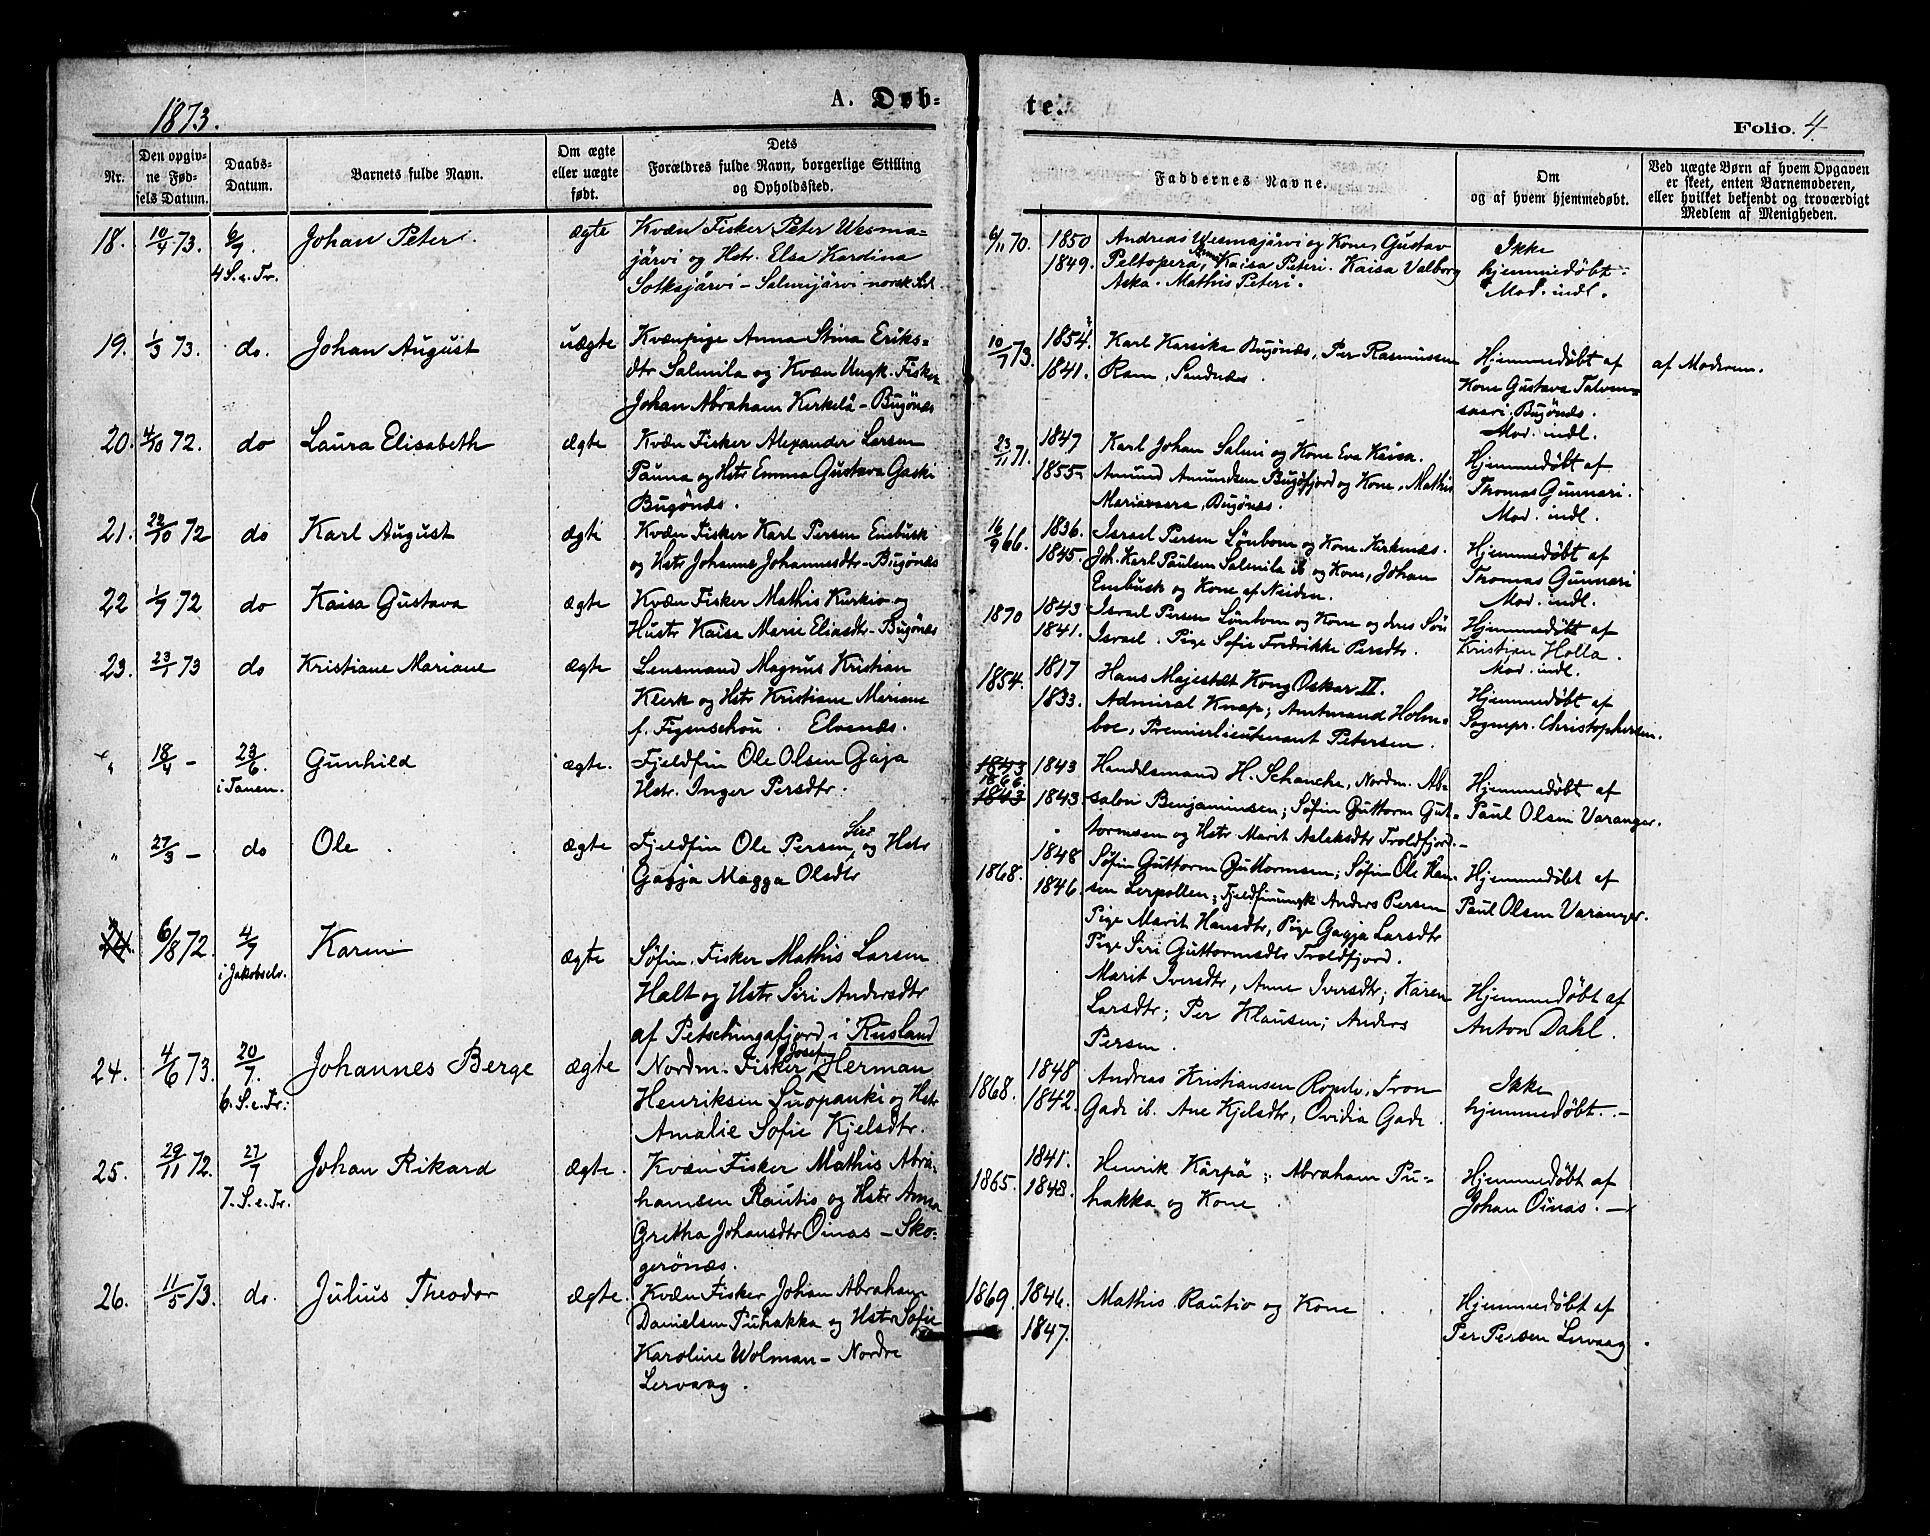 1873.
A. Døb-
te.
Folio. 4
Nr.
Den opgiv-
ne Fød-
sels Datum.
Daabs-
Datum.
Barnets fulde Navn.
Om ægte
eller uægte
født.
Dets
Forældres fulde Navn, borgerlige Stilling
og Opholdssted.
Faddernes Navne.
Om
og af hvem hjemmedøbt.
Ved uægte Børn af hvem Opgaven
er skeet, enten Barnemoderen,
eller hvilket bekjendt og troværdigt
Medlem af Menigheden.
18. 10/4 73. 6/7
4 S. e. Tr.
Johan Peter.
ægte
Kvæn Fisker Peter Wesma-
järvi og Hstr. Elsa Kardina
Sotksjärvi - Salmijärvi norsk Sd.
6/11 70. 1850
1849.
Andreas Wesmajärvi og Kone, Gustav
Peltopera, Kaisa Peteri. Kaisa Valborg
Aska. Mathis Peteri.
Ikke
hjemmedøbt.
Mod. indl.
19. 1/3 73. do.
Johan August
uægte
Kvænpige Anna Stina Eriks-
dtr Salmila og Kvæn Ungk. Fisker
Johan Abraham Kerkelä - Bugönæs
10/7 73. 1854.
1841.
Karl Karsika Bugönæs, Per Rasmussen
Ram, Sandnæs.
Hjemmedøbt af
Kone Gustava Talven-
saari. Bugönæs.
Mod. indl.
af Moderen.
20. 4/10 72. do
Laura Elisabeth
ægte
Kvæn Fisker Alexander Larsen
Pauna og Hstr Emma Gustava Gaski
Bugönæs.
23/11 71. 1847
1855
Karl Johan Salmi og Kone Eva Kaisa.
Amund Amundsen Bugöfjord og Kone, Mathis
Mariavaara, Bugönæs.
Hjemmedøbt af
Thomas Gunnari.
Mod. indl.
21. 22/10 72 do
Karl August
ægte
Kvæn Fisker Karl Persen Einbusk
og Hstr Johanne Johannesdtr - Bugönæs
16/9 66. 1836.
1845.
Israel Persen Lönbom og Kone Kirknæs.
Joh. Karl Paulsen Salmila ib og Kone, Johan
Embusk og Kone af Neiden.
Hjemmedøbt af
Thomas Gunnari
Mod. indl.
22 1/7 72 do
Kaisa Gustava
ægte
Kvæn Fisker Mathis Kurkio og
Hustr Kaisa Marie Eliasdtr - Bugönæs
1870 1843
1841.
Israel Persen Lönbom og Kone og deres Søn
Israel. Pige Sofie Fredrikke Persdtr.
Hjemmedøbt af
Kristjan Holla.
Mod. indl.
23. 23/1 73 do
Kristiane Mariane
ægte
Lensmand Magnus Kristian
Klerk og Hstr Kristiane Mariane
f. Figenschou. Elvenæs.
1854. 1817
1833.
Hans Majestæt Kong Oskar II.
Admiral Knap; Amtmand Holm-
boe, Premierlieutenant Petersen.
Hjemmedøbt af
Sognpr. Christophersen.
" 18/4 - 23/6.
i Tanen.
Gunhild
ægte.
Fjeldfin Ole Olsen Gaja
Hstr. Inger Persdtr.
1843
1866.
1843
1843
1843
Handelsmand H. Schanche, Nordm. Ab-
salon Benjaminsen; Søfin Guttorm Gut-
tormsen og Hstr Marit Aslaksdtr Troldfjord.
Hjemmedøbt af
Paul Olsen Varanger.
" 27/3 - do
Ole
ægte
Fjeldfin Ole Persen Siri og Hstr
Gagja Magga Olsdtr
1868. 1848
1846.
Søfin Guttorm Guttormsen; Søfin Ole Han-
sen Lerpollen; Fjeldfinungk Anders Persen
Pige Marit Hansdtr, Pige Gagja Larsdtr
Pige Siri Guttormsdtr Troldfjord.
Hjemmedøbt af
Paul Olsen Varanger.
6/8 72. 4/7
i Jakobselv.
Karen
ægte
Søfin. Fisker Mathis Larsen
Halt og Hstr Siri Andersdtr
af Petschingafjord i Rusland
Marit Iversdtr, Anne Iversdtr; Karen
Larsdtr; Per Klausen; Anders
Persen.
Hjemmedøbt af
Anton Dahl.
24. 4/6 73. 20/7.
6. S. e. Tr.
Johannes Berge
ægte
Nordm. Fisker Josef Herman
Henriksen Suopanki og Hstr
Amalie Sofie Kjelsdtr.
1868. 1848
1842.
Andreas Kristiansen, Tron
Gade ib. Ane Kjelsdtr, Ovidia Gade.
Ikke
hjemmedøbt.
25. 29/11 72. 27/7
7. S. e. Tr.
Johan Rikard
ægte.
Kvæn Fisker Mathis Abra-
hamsen Rautio og Hstr Anna
Gretha Johansdtr Oinas - Sko-
gerönæs.
1865. 1841.
1848.
Henrik Kärpä; Abraham Pu-
hakka og Kone.
Hjemmedøbt af
Johan Oinas.
26. 11/5 73. do.
Julius Theodor
ægte.
Kvæn Fisker Johan Abraham
Danielsen Puhakka og Hstr Sofie
Karoline Wolman - Nordre
Lervaag.
1869. 1846.
1847.
Mathis Rautio og Kone.
Hjemmedøbt af
Per Persen Lervaag.